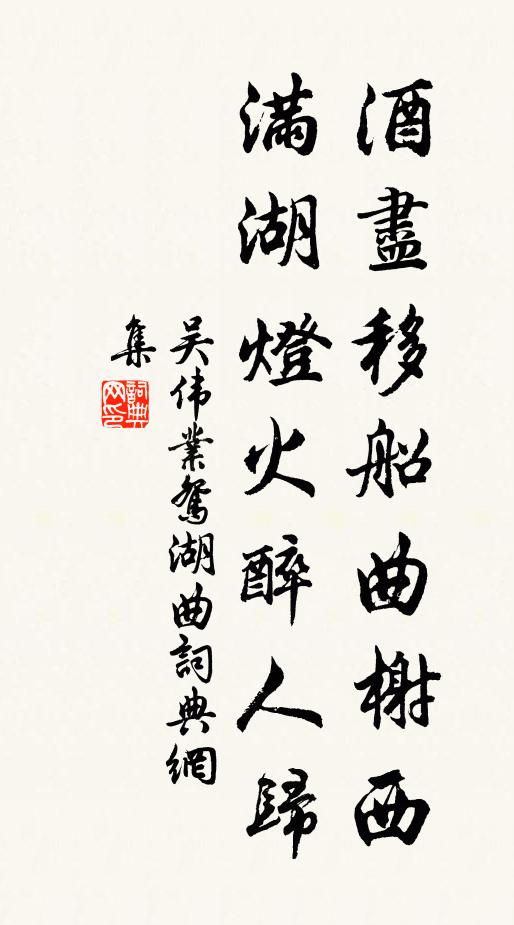 酒盡移船曲榭西
滿湖燈火醉人歸
吴伟業鴛湖曲詞典網
集
詞典網印